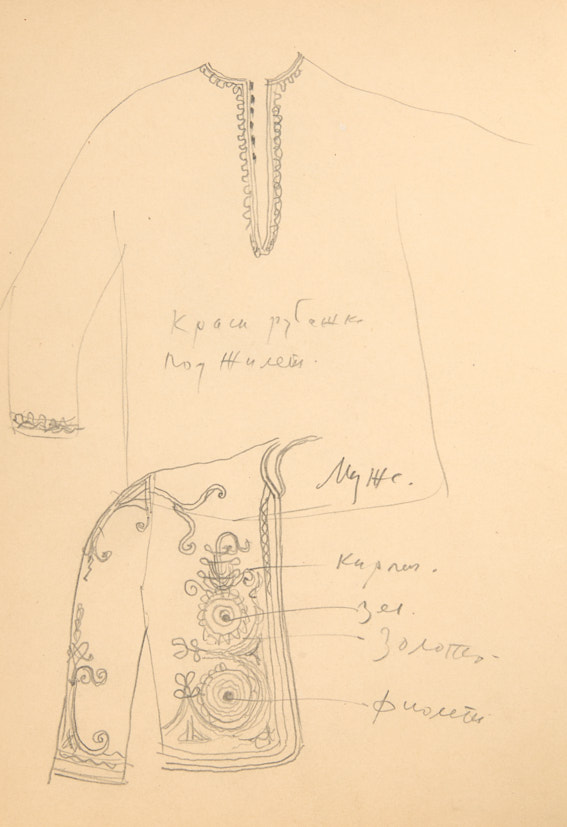 Красн рубашка
под жилет.
Муже.
кирпич.
зел.
Золото
фиолет